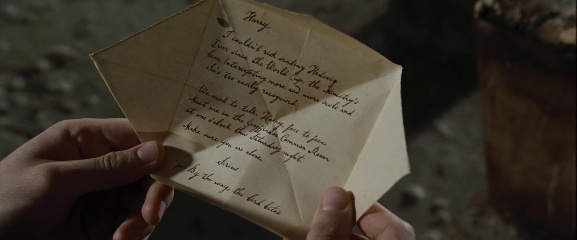 Harry,
I couldn't risk sending Hedwig.
Ever since the World Cup, the Ministry's
been intercepting more and more owls and
she's too easily recognised.
We need to talk, Harry, face to face.
Meet me in the Gryffindor Common Room
at one o'clock this Saturday night.
Make sure you're alone.
Sirius
By the way, the bird bites